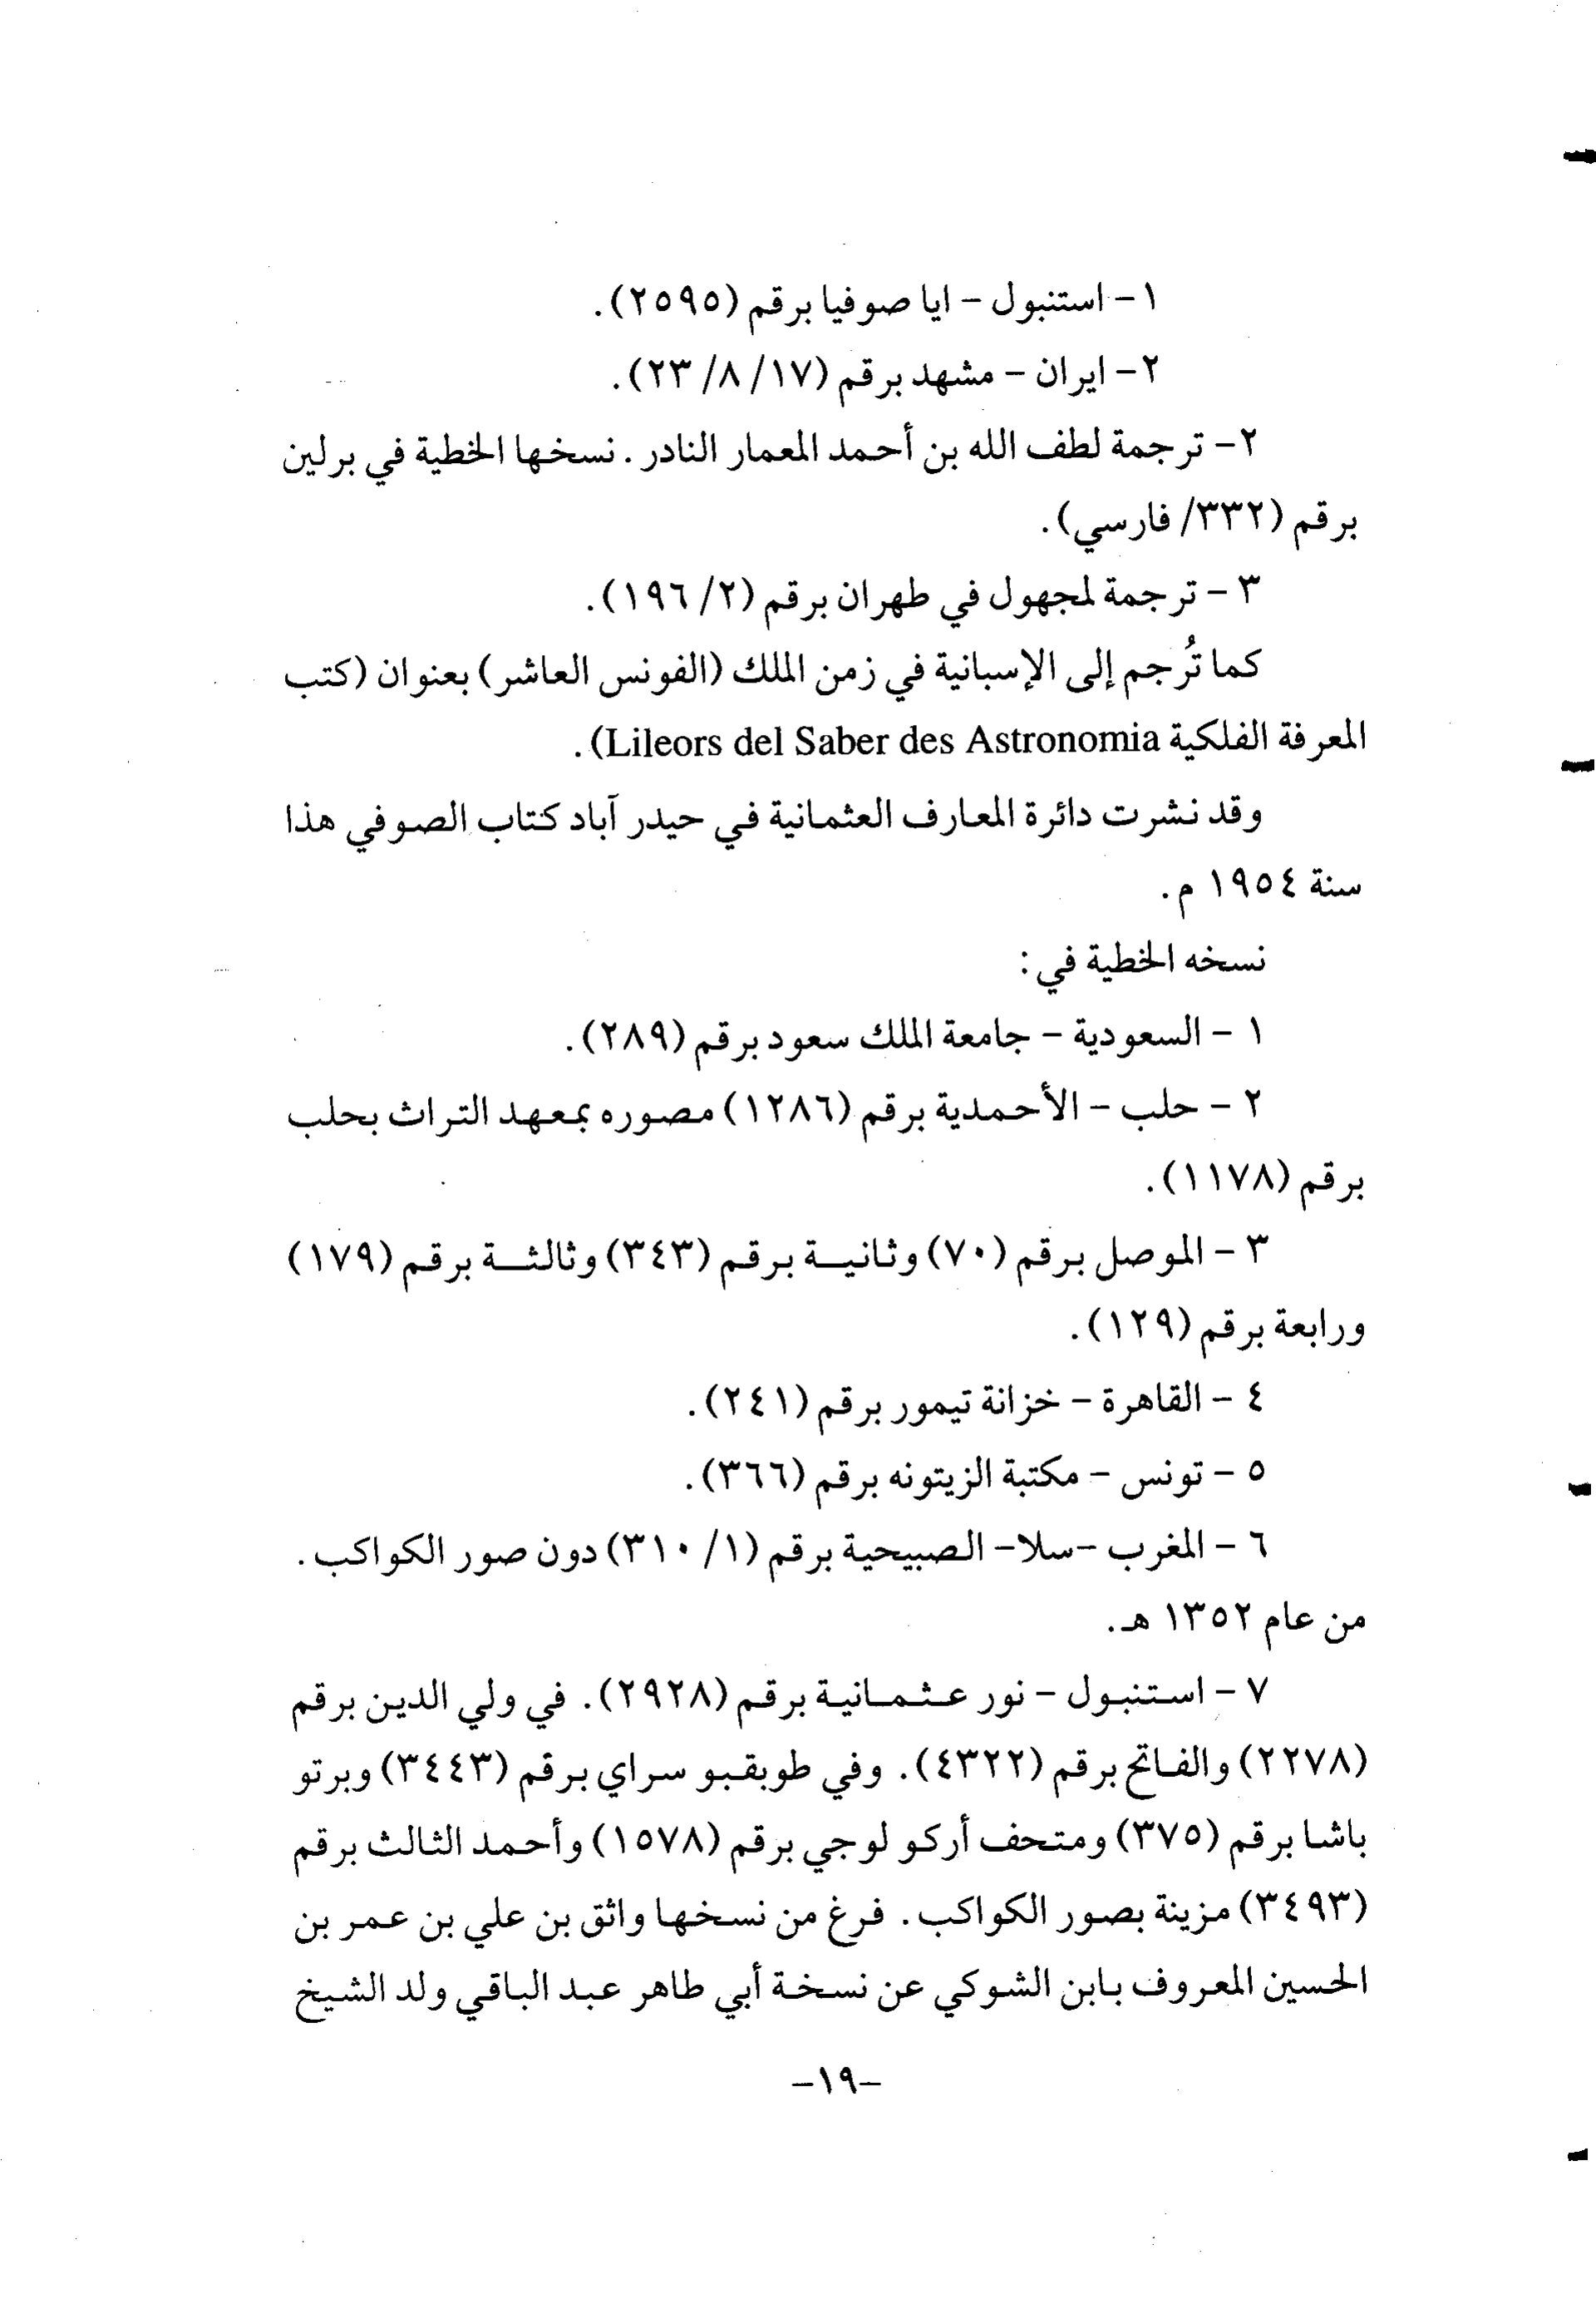 ١- استنبول - ايا صوفيا برقم (٢٥٩٥).
٢- ايران - مشهد برقم (١٧/ ٨/ ٢٣).
٢- ترجمة لطف الله بن أحمد المعمار النادر. نسخها الخطية في برلين
برقم (٣٣٢/ فارسي).
٣- ترجمة لمجهول في طهران برقم (٢/ ١٩٦).
كما تُرجم إلى الإسبانية في زمن الملك (الفونس العاشر) بعنوان (كتب
المعرفة الفلكية Lileors del Saber des Astronomia).
وقد نشرت دائرة المعارف العثمانية في حيدر آباد كتاب الصوفي هذا
سنة ١٩٥٤ م.
نسخه الخطية في:
١ - السعودية - جامعة الملك سعود برقم (٢٨٩).
٢ - حلب - الأحمدية برقم (١٢٨٦) مصوره بمعهد التراث بحلب
برقم (١١٧٨).
٣ - الموصل برقم (٧٠) وثانية برقم (٣٤٣) وثالثة برقم (١٧٩)
ورابعة برقم (١٢٩).
٤ - القاهرة - خزانة تيمور برقم (٢٤١).
٥ - تونس - مكتبة الزيتونه برقم (٣٦٦).
٦ - المغرب -سلا- الصبيحية برقم (١/ ٣١٠) دون صور الكواكب.
من عام ١٣٥٢ هـ.
٧ - استنبول - نور عثمانية برقم (٢٩٢٨). في ولي الدين برقم
(٢٢٧٨) والفاتح برقم (٤٣٢٢). وفي طوبقبو سراي برقم (٣٤٤٣) وبرتو
باشا برقم (٣٧٥) ومتحف أركو لوجي برقم (١٥٧٨) وأحمد الثالث برقم
(٣٤٩٣) مزينة بصور الكواكب. فرغ من نسخها واثق بن علي بن عمر بن
الحسين المعروف بابن الشوكي عن نسخة أبي طاهر عبد الباقي ولد الشيخ
-١٩-